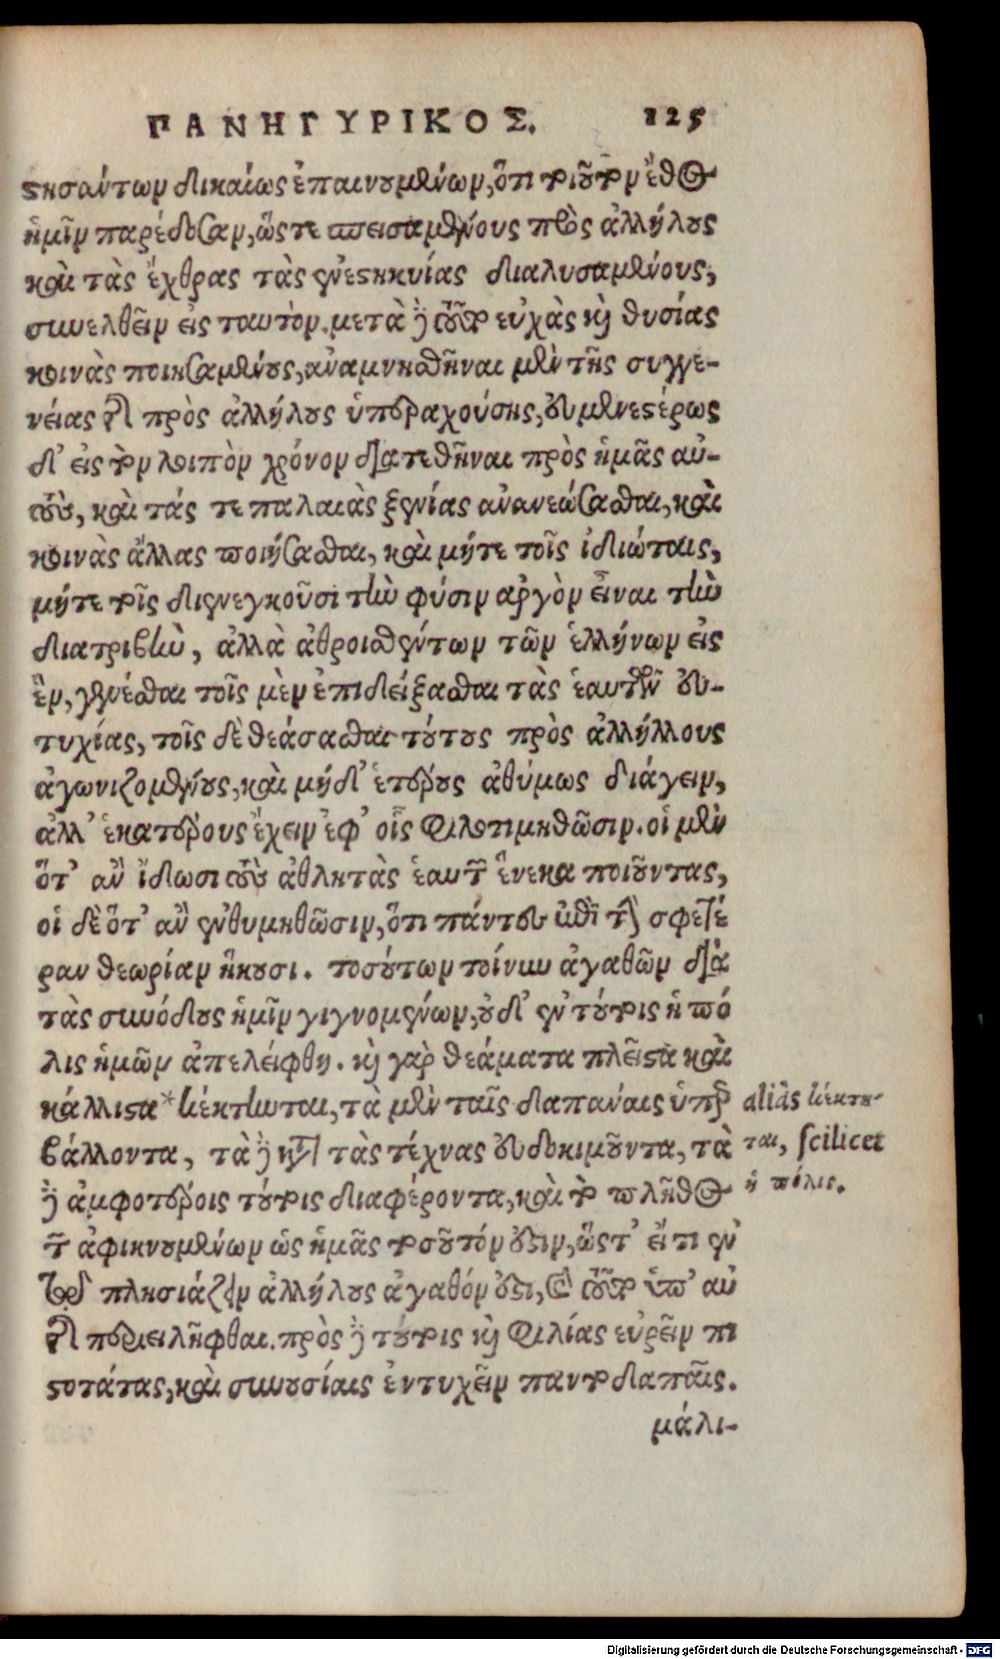 ΠΑΝΗΓΥΡΙΚΟΣ. 125
στησάντων δικαίως ἐπαινουμένων, ὅτι τοιοῦτον ἔθος
ἡμῖν παρέδοσαν, ὥστε σπεισαμένους πρὸς ἀλλήλους
καὶ τὰς ἔχθρας τὰς ἐνεστηκυίας διαλυσαμένους,
συνελθεῖν εἰς ταυτὸν. μετὰ δὲ ταῦτα εὐχὰς καὶ θυσίας
κοινὰς ποιησαμένους, ἀναμνησθῆναι μὲν τῆς συγγε-
νείας τῆς πρὸς ἀλλήλους ὑπαρχούσης, εὐμενεστέρως
δ' εἰς τὸν λοιπὸν χρόνον διατεθῆναι πρὸς ἡμᾶς αὐ-
τοὺς, καὶ τάς τε παλαιὰς ξενίας ἀνανεώσασθαι, καὶ
κοινὰς ἄλλας ποιήσασθαι, καὶ μήτε τοῖς ἰδιώταις,
μήτε τοῖς διενεγκοῦσι τὴν φύσιν ἀργὸν εἶναι τὴν
διατριβὴν, ἀλλὰ ἀθροισθέντων τῶν ἑλλήνων εἰς
ἓν, γενέσθαι τοῖς μὲν ἐπιδείξασθαι τὰς ἑαυτῶν εὐ-
τυχίας, τοῖς δὲ θεάσασθαι τούτους πρὸς ἀλλήλλους
ἀγωνιζομένους, καὶ μήδ' ἑτέρους ἀθύμως διάγειν,
ἀλλ' ἑκατέρους ἔχειν ἐφ' οἷς φιλοτιμηθῶσιν. οἱ μὲν
ὅτ' ἂν ἴδωσι τοὺς ἀθλητὰς ἑαυτῶν ἕνεκα ποιοῦντας,
οἱ δὲ ὅτ' ἂν ἐνθυμηθῶσιν, ὅτι πάντες ἐπὶ τὴν σφετέ
ραν θεωρίαν ἥκουσι. τοσούτων τοίνυν ἀγαθῶν διὰ
τὰς συνόδους ἡμῖν γιγνομένων, οὐδ' ἐν τούτοις ἡ πό
λις ἡμῶν ἀπελείφθη. καὶ γὰρ θεάματα πλεῖστα καὶ
κάλλιστα * κέκτηται, τὰ μὲν ταῖς δαπάναις ὑπερ
βάλλοντα, τὰ δὲ κατὰ τὰς τέχνας εὐδοκιμοῦντα, τὰ
δὲ ἀμφοτέροις τούτοις διαφέροντα, καὶ τὸ πλῆθος
τῶν ἀφικνουμένων ὡς ἡμᾶς τοσοῦτόν ἐστιν, ὥστ' εἴ τι ἐν
τῷ πλησιάζειν ἀλλήλους ἀγαθόν ἐστι, καὶ τοῦτο ὑπ' αὐ
τῆς περιειλῆφθαι. πρὸς δὲ τούτοις καὶ φιλίας εὑρεῖν πι
στοτάτας, καὶ συνουσίαις ἐντυχεῖν παντοδαπαῖς.
μάλι-
aliâs κέκτη-
ται, scilicet
ἡ πόλις.
Digitalisierung gefördert durch die Deutsche Forschungsgemeinschaft - DFG